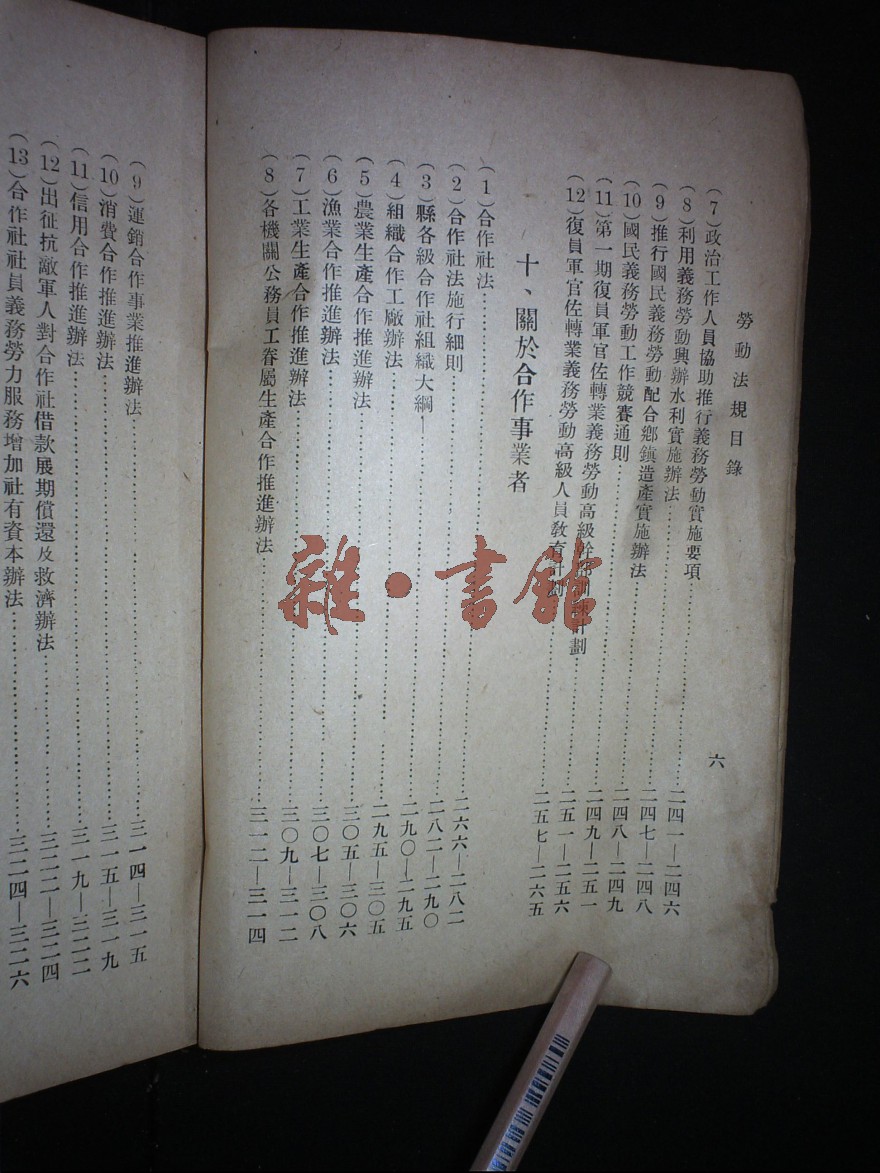 勞動法規目錄　六
（7）政治工作人員協助推行義務勞動實施要項……二四一—二四六
（8）利用義務勞動興辦水利實施辦法……二四七—二四八
（9）推行國民義務勞動配合鄉鎮造產實施辦法……二四八—二四九
（10）國民義務勞動工作競賽通則……二四九—二五一
（11）第一期復員軍官佐轉業義務勞動高級幹部訓練計劃……二五一—二五六
（12）復員軍官佐轉業義務勞動高級人員教育計劃……二五七—二六五
十、關於合作事業者
（1）合作社法……二六六—二八二
（2）合作社法施行細則……二八二—二九〇
（3）縣各級合作社組織大綱……二九〇—二九五
（4）組織合作工廠辦法……二九五—三〇五
（5）農業生產合作推進辦法……三〇五—三〇六
（6）漁業合作推進辦法……三〇七—三〇八
（7）工業生產合作推進辦法……三〇九—三一二
（8）各機關公務員工眷屬生產合作推進辦法……三一二—三一四
（9）運銷合作事業推進辦法……三一四—三一五
（10）消費合作推進辦法……三一五—三一九
（11）信用合作推進辦法……三一九—三二二
（12）出征抗敵軍人對合作社借款展期償還及救濟辦法……三二二—三二四
（13）合作社社員義務勞力服務增加社有資本辦法……三二四—三二六
雜·書館